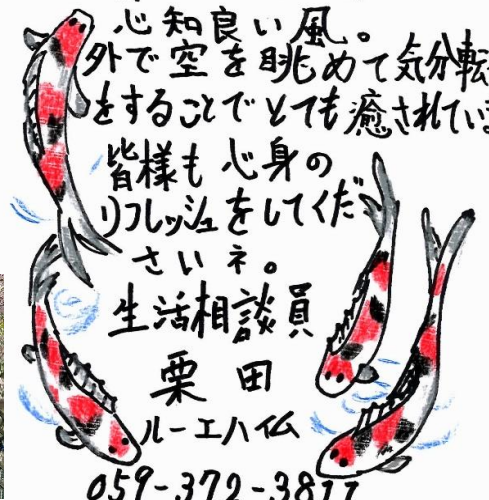 心知良い風。
外で空を眺めて気分転
をすることでとても癒されてい
皆様も心身の
リフレッシュをしてくだ
さいネ。
生活相談員
栗田
ルーエハイム
059-372-3811